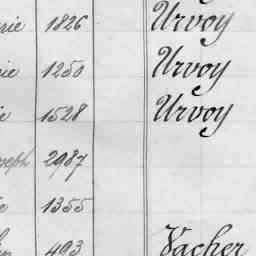 rie 1826 Urvoy
rie 1250 Urvoy
ie 1528 Urvoy
oseph 2987
e 1355
in 493 Vacher